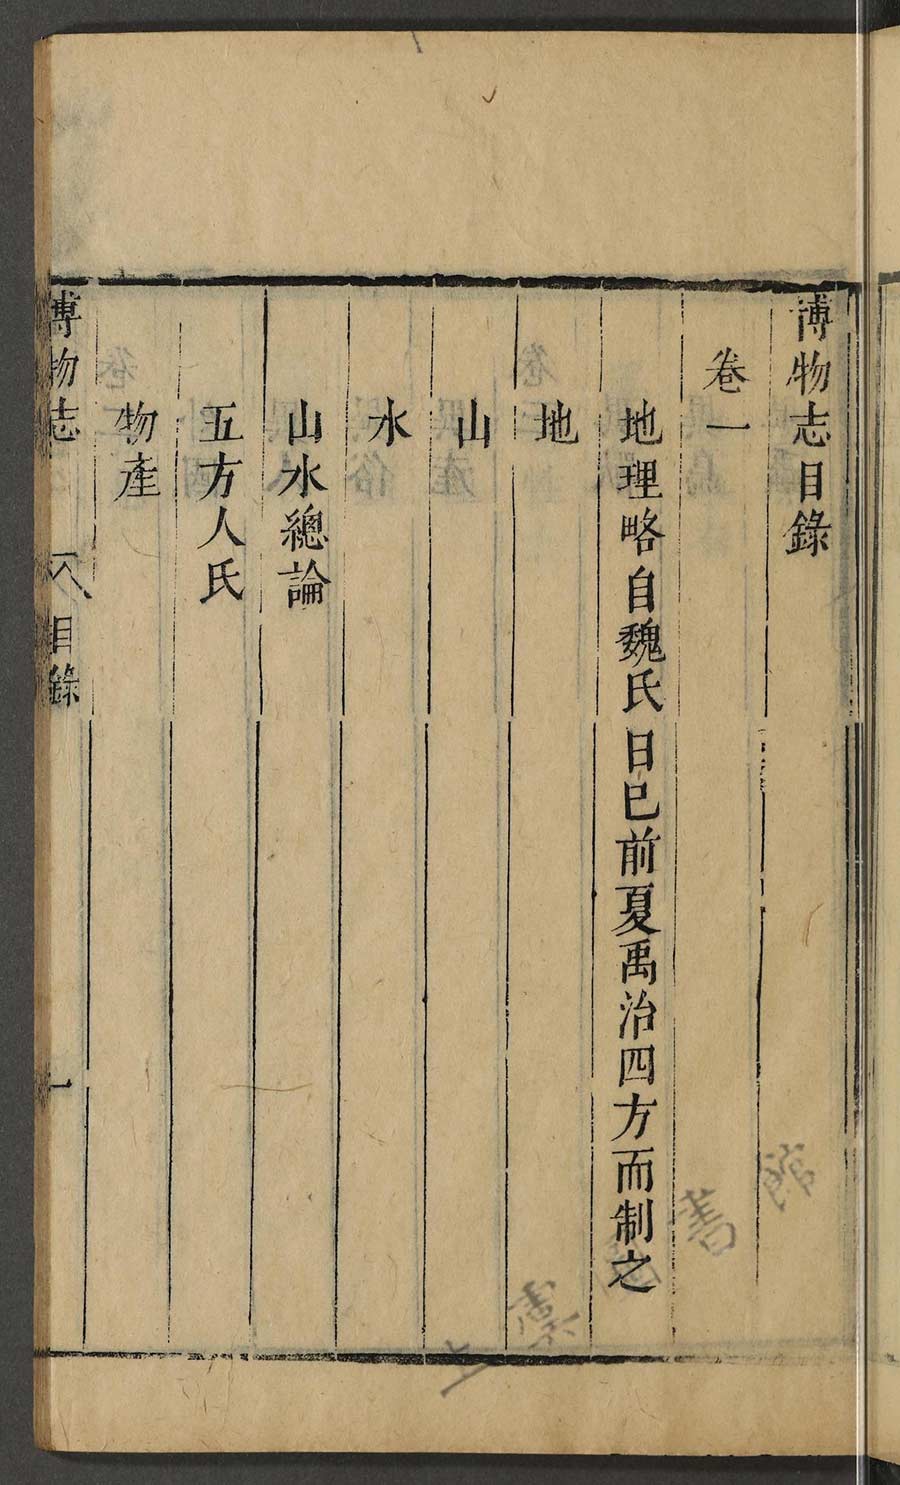 博物志目錄
卷一
地理略自魏氏日已前夏禹治四方而制之
地
山
水
山水總論
五方人氏
物產
博物志 目錄 一
上虞 書館